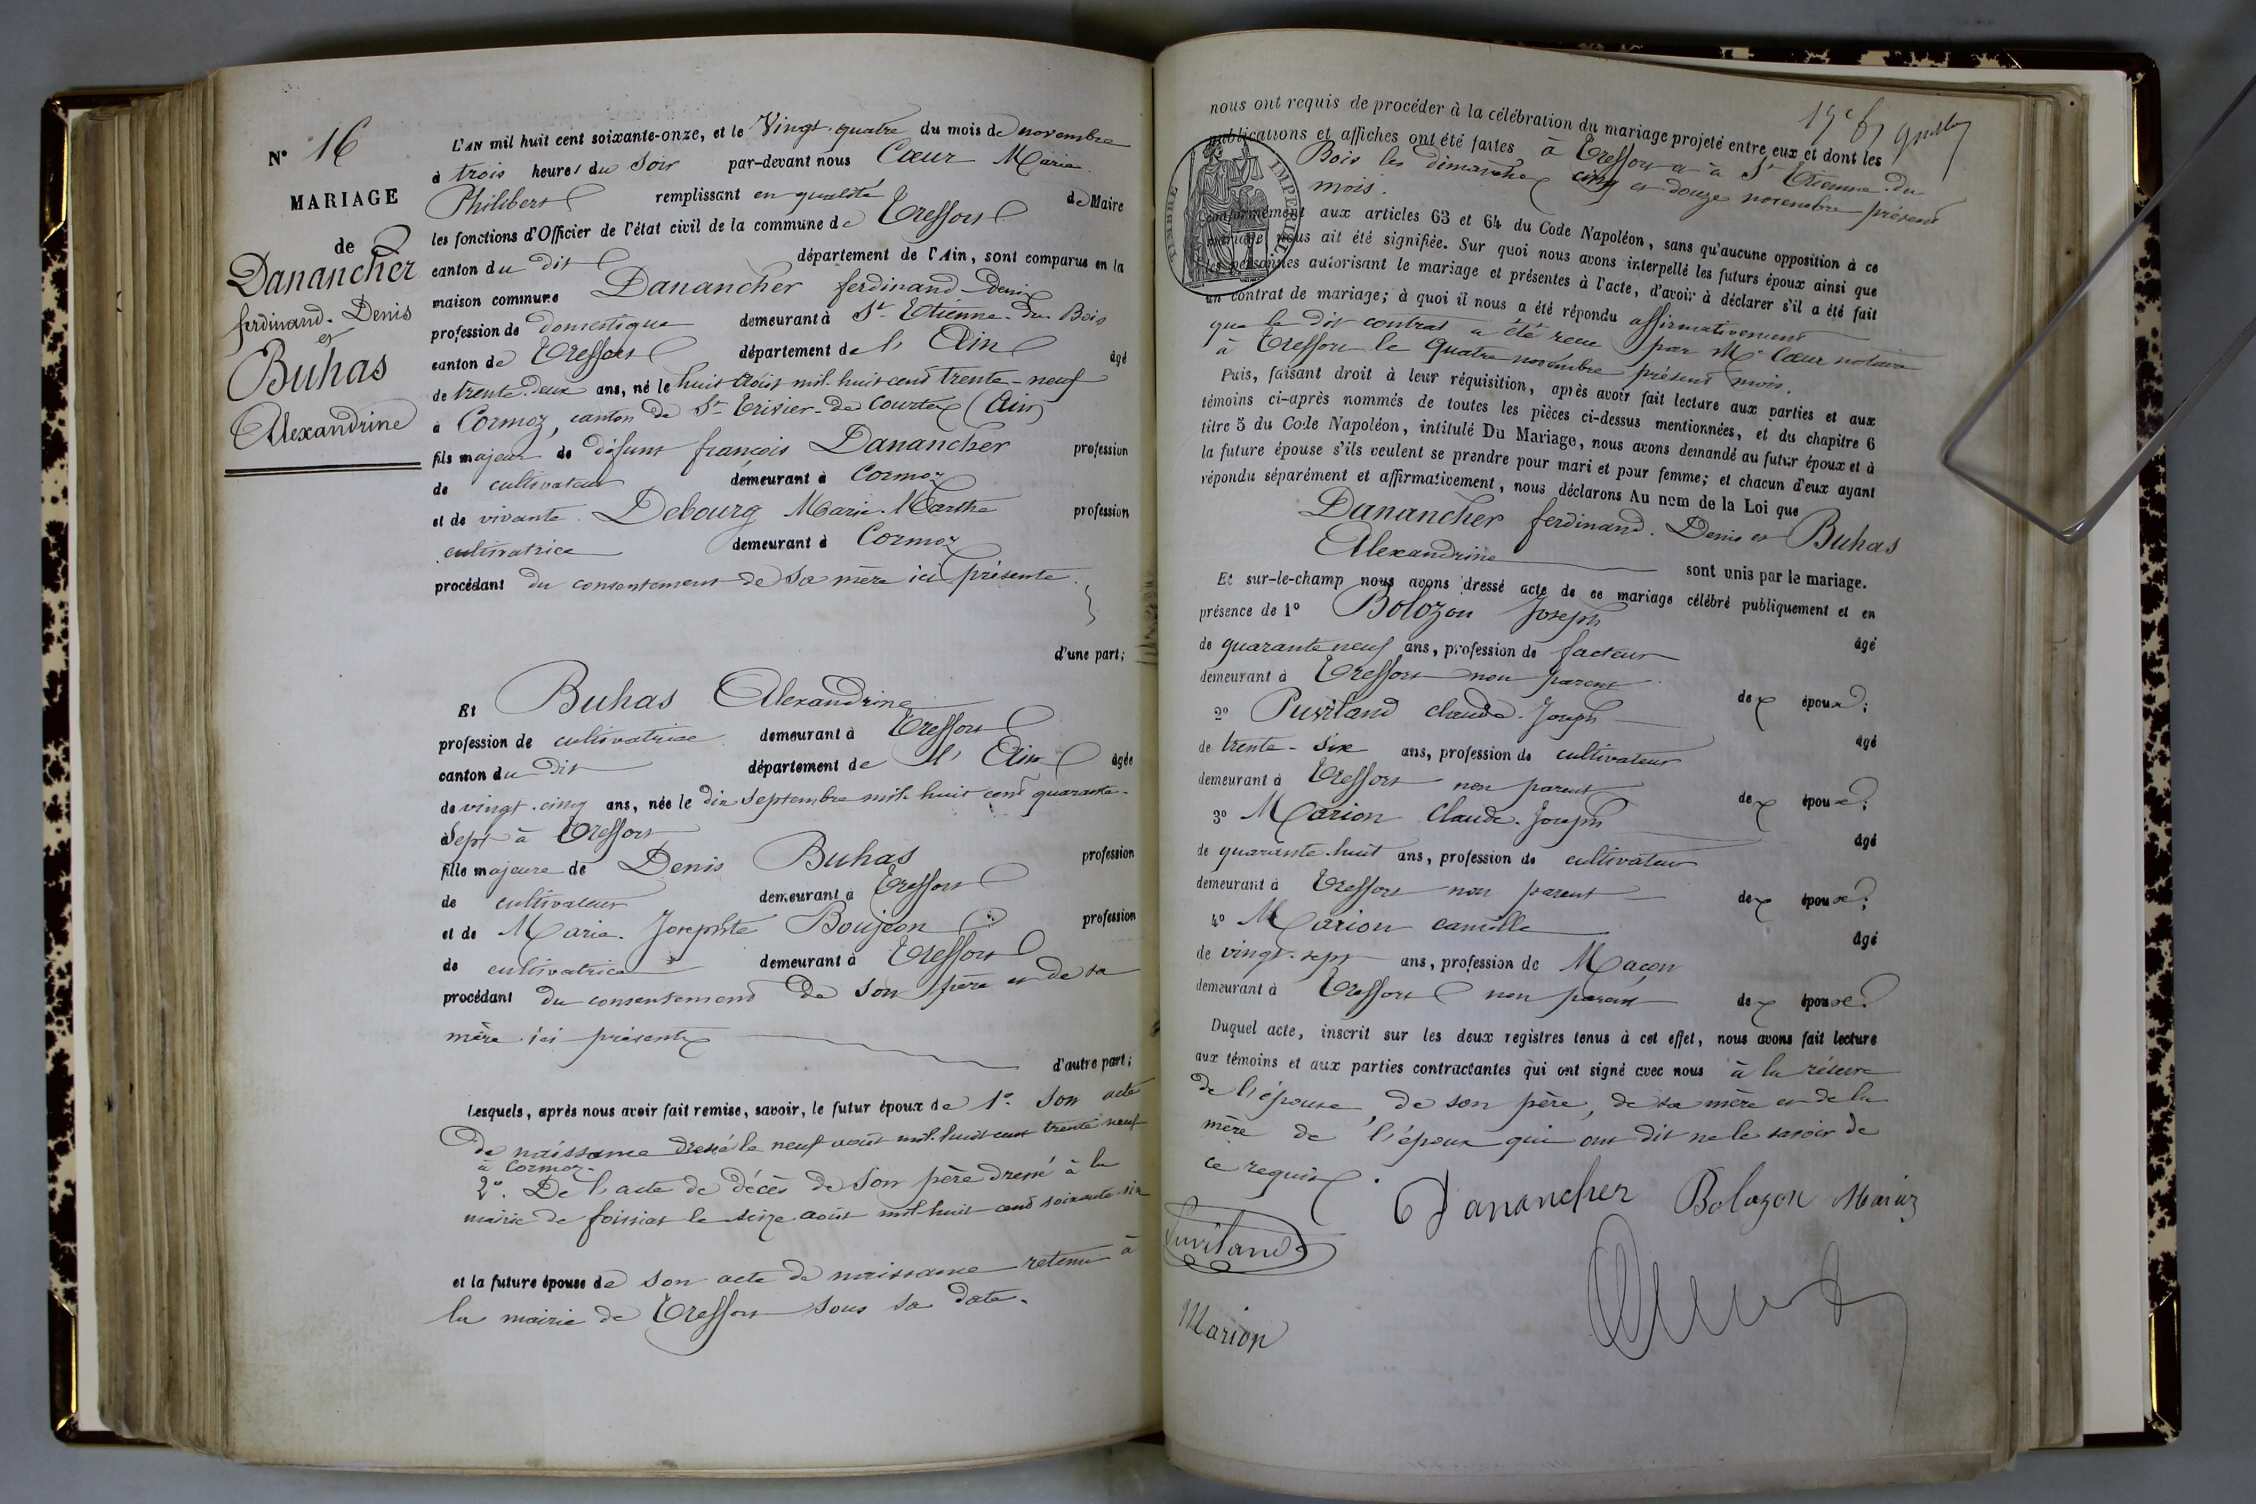 N° 16
MARIAGE
de
Danancher
ferdinand. Denis
et
Buhas
Alexandrine
L'AN mil huit cent soixante-onze, et le Vingt-quatre du mois de novembre
à trois heures du Soir par-devant nous Cœur Marie
Philibert remplissant en qualité de Maire
les fonctions d'Officier de l'état civil de la commune de Treffort
canton du dit département de l'Ain, sont comparus en la
maison commune Danancher ferdinand-Denis
profession de domestique demeurant à St. Etienne-du-Bois
canton de Treffort département de l'Ain âgé
de trente-deux ans, né le huit août mil-huit cent trente-neuf
à Cormoz, canton de St. Trivier-de Courtes (Ain)
fils majeur de défunt françois Danancher profession
de cultivateur demeurant à Cormoz
et de vivante Debourg Marie-Marthe profession
cultivatrice demeurant à Cormoz
procédant du consentement de sa mère ici présente.
d'une part;
Et Buhas Alexandrine
profession de cultivatrice demeurant à Treffort
canton du dit département de l'Ain âgée
de vingt-cinq ans, née le dix septembre mil-huit cent quarante-
à Sept à Treffort
fille majeure de Denis Buhas profession
de cultivateur demeurant à Treffort
et de Marie. Josephte Boujeon profession
de cultivatrice demeurant à Treffort
procédant du consentement de son père et de sa
mère ici présents
d'autre part;
Lesquels, après nous avoir fait remise, savoir, le futur époux de 1°. Son acte
de naissance dressé le neuf août mil-huit cent trente neuf
à Cormoz.
2°. De l'acte de décès de son père dressé à la
mairie de foissiat le seize août mil-huit cent soixante-six
et la future épouse de son acte de naissance retenu à
la mairie de Treffort sous sa date.
nous ont requis de procéder à la célébration du mariage projeté entre eux et dont les
publications et affiches ont été faites à Treffort et à St. Etienne-du
Bois les dimanches cinq et douze novembre présent
mois.
TIMBRE IMPERIAL
conformément aux articles 63 et 64 du Code Napoléon, sans qu'aucune opposition à ce
mariage nous ait été signifiée. Sur quoi nous avons interpellé les futurs époux ainsi que
les personnes autorisant le mariage et présentes à l'acte, d'avoir à déclarer s'il a été fait
un contrat de mariage; à quoi il nous a été répondu affirmativement
que le dit contrat a été reçu par Me. Cœur notaire
à Treffort le quatre novembre présent mois.
Puis, faisant droit à leur réquisition, après avoir fait lecture aux parties et aux
témoins ci-après nommés de toutes les pièces ci-dessus mentionnées, et du chapitre 6
titre 5 du Code Napoléon, intitulé Du Mariage, nous avons demandé au futur époux et à
la future épouse s'ils veulent se prendre pour mari et pour femme; et chacun d'eux ayant
répondu séparément et affirmativement, nous déclarons Au nom de la Loi que
Danancher ferdinand. Denis et Buhas
Alexandrine sont unis par le mariage.
Et sur-le-champ nous avons dressé acte de ce mariage célébré publiquement et en
présence de 1° Bolozon Joseph âgé
de quarante neuf ans, profession de facteur
demeurant à Treffort non parent de époux;
2° Puvilland Claude. Joseph âgé
de trente-six ans, profession de cultivateur
demeurant à Treffort non parent de époux;
3° Marion Claude. Joseph âgé
de quarante-huit ans, profession de cultivateur
demeurant à Treffort non parent de époux;
4° Marion camille âgé
de vingt-sept ans, profession de Maçon
demeurant à Treffort non parent de époux
Duquel acte, inscrit sur les deux registres tenus à cet effet, nous avons fait lecture
aux témoins et aux parties contractantes qui ont signé avec nous à la réserve
de l'épouse, de son père, de sa mère et de la
mère de l'époux qui ont dit ne le savoir de
ce requis.
Danancher Bolozon
Puviland
Marion